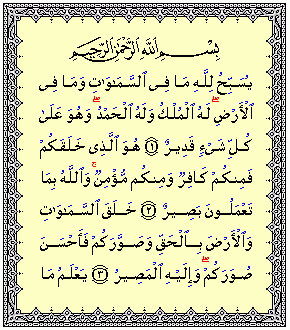 بِسْمِ اللَّهِ الرَّحْمَٰنِ الرَّحِيمِ
يُسَبِّحُ لِلَّهِ مَا فِى ٱلسَّمَٰوَٰتِ وَمَا فِى
ٱلْأَرْضِ ۖ لَهُ ٱلْمُلْكُ وَلَهُ ٱلْحَمْدُ ۖ وَهُوَ عَلَىٰ
كُلِّ شَىْءٍ قَدِيرٌ ﴿١﴾ هُوَ ٱلَّذِى خَلَقَكُمْ
فَمِنكُمْ كَافِرٌ وَمِنكُم مُّؤْمِنٌ ۚ وَٱللَّهُ بِمَا
تَعْمَلُونَ بَصِيرٌ ﴿٢﴾ خَلَقَ ٱلسَّمَٰوَٰتِ
وَٱلْأَرْضَ بِٱلْحَقِّ وَصَوَّرَكُمْ فَأَحْسَنَ
صُوَرَكُمْ ۖ وَإِلَيْهِ ٱلْمَصِيرُ ﴿٣﴾ يَعْلَمُ مَا